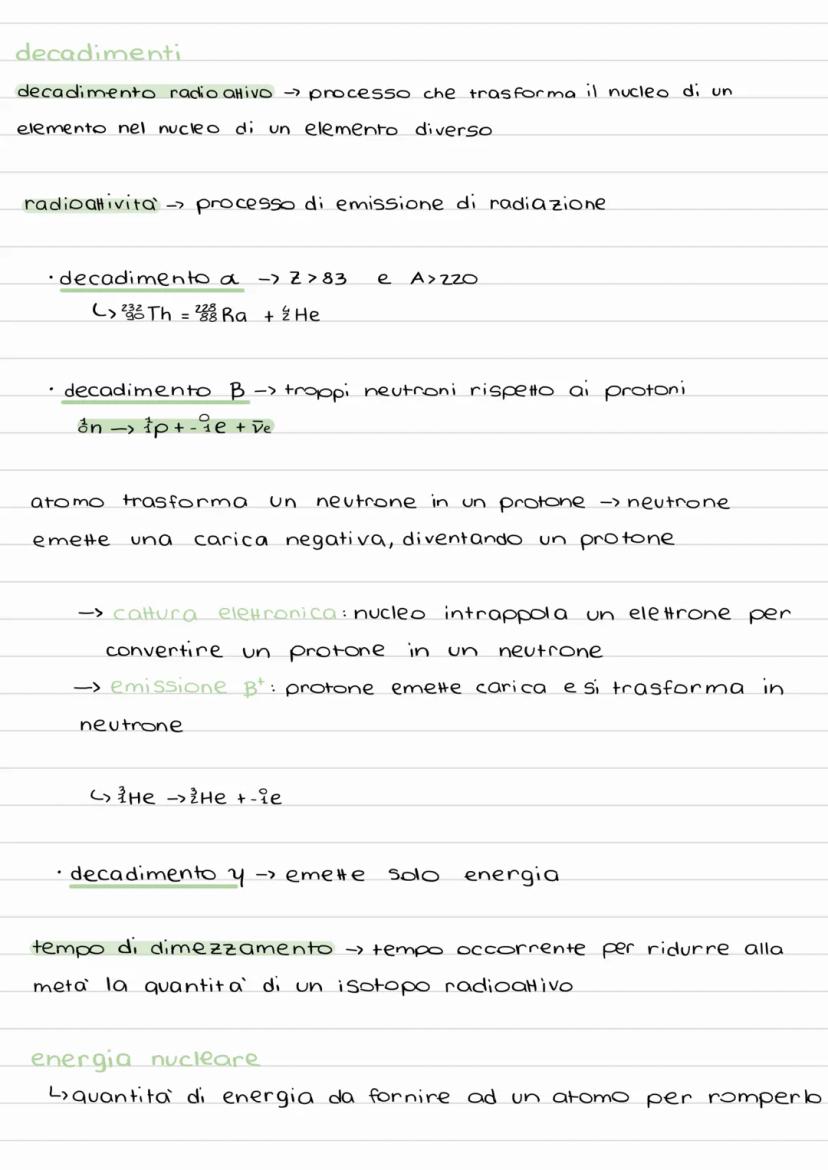 decadimenti
decadimento radioattivo → processo che trasforma il nucleo di un
elemento nel nucleo di un elemento diverso
radioattivita' → processo di emissione di radiazione
· decadimento α → Z > 83 e A > 220
↳ ²³²₉₀Th = ²²⁸₈₈Ra + ⁴₂He
· decadimento β → troppi neutroni rispetto ai protoni
¹₀n → ¹₁p + ⁰₋₁e + ν̄e
atomo trasforma un neutrone in un protone → neutrone
emette una carica negativa, diventando un protone
→ cattura elettronica: nucleo intrappola un elettrone per
convertire un protone in un neutrone
→ emissione β⁺: protone emette carica e si trasforma in
neutrone
↳ ³₁He → ³₂He + ⁰₋₁e
· decadimento γ → emette solo energia
tempo di dimezzamento → tempo occorrente per ridurre alla
meta' la quantita' di un isotopo radioattivo
energia nucleare
↳ quantita' di energia da fornire ad un atomo per romperlo